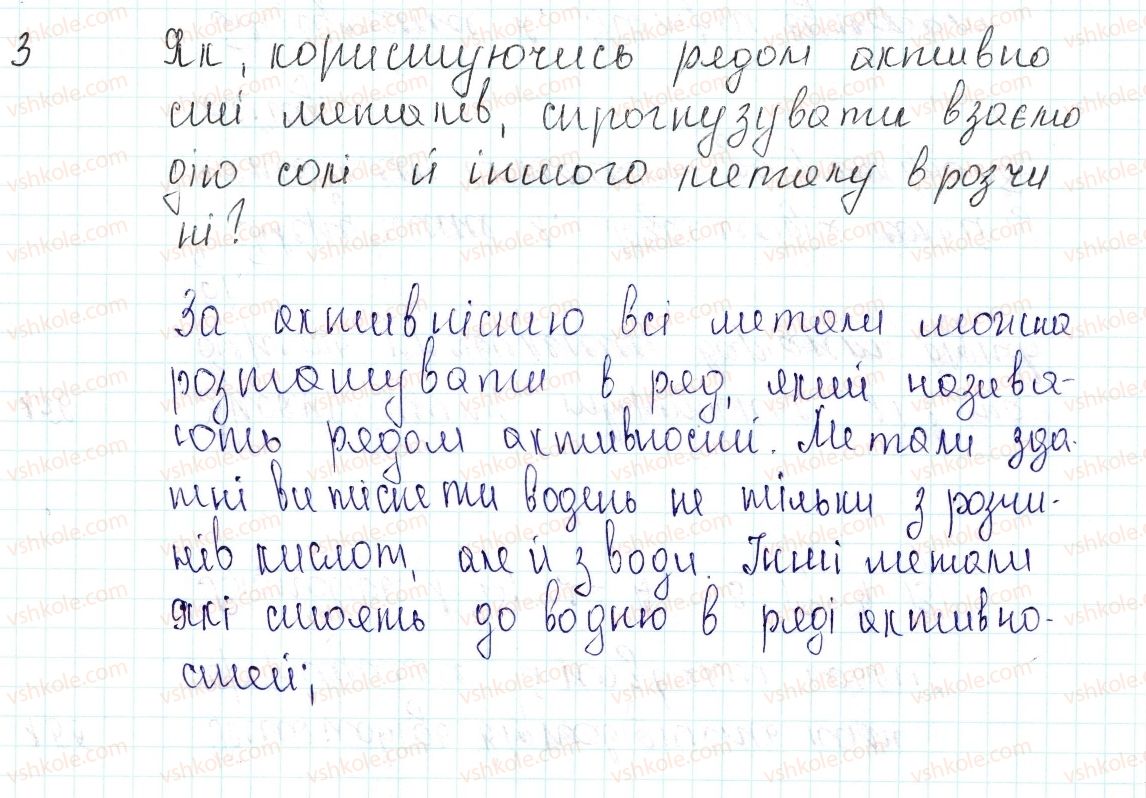 3 Як, користуючись рядом активно
сті металів, спрогнузувати взаємо
дію солі й іншого металу в розчи
ні?
За активністю всі метали можна
розташувати в ряд, який назива-
ють рядом активності. Метали зда-
тні витісняти водень не тільки з розчи-
нів кислот, але й з води. Інші метали
які стоять до водню в ряді активно-
стей;